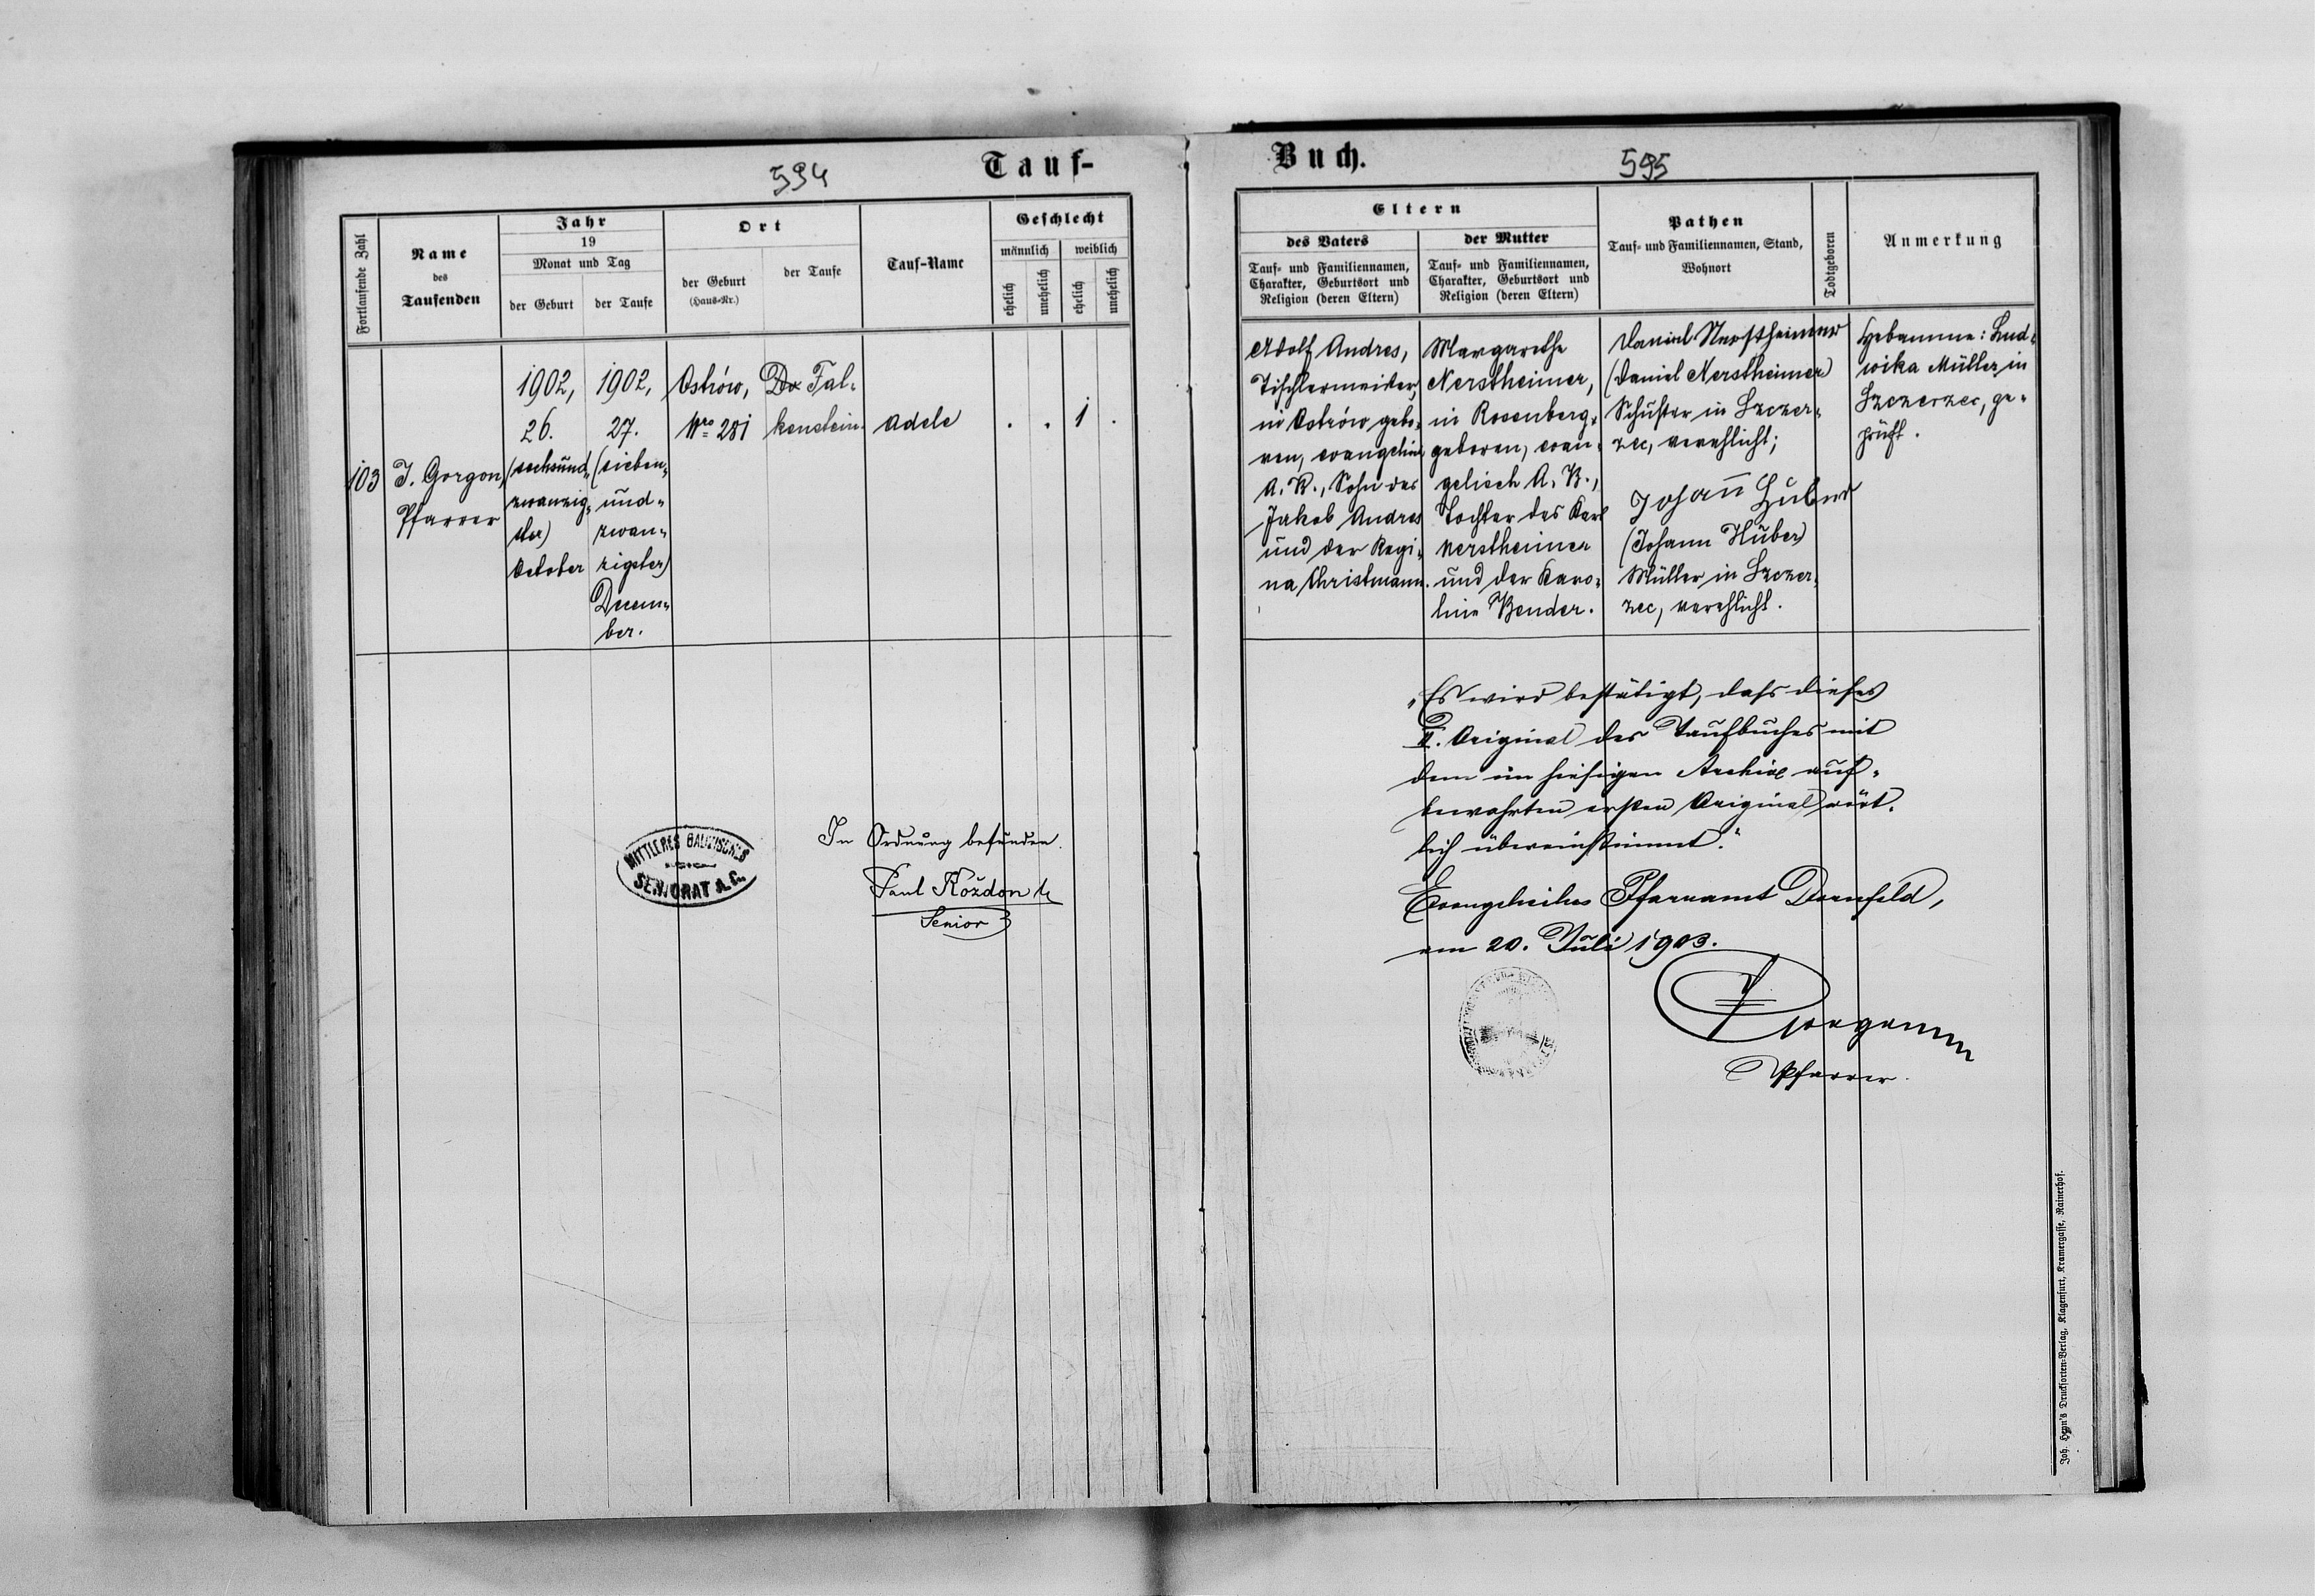 594
Tauf-
Fortlaufende Zahl
Name
des
Taufenden
Jahr
19
Monat und Tag
der Geburt
der Taufe
Ort
der Geburt
(Haus-Nr.)
der Taufe
Tauf-Name
Geschlecht
männlich
weiblich
ehelich
unehelich
ehelich
unehelich
103
J. Gorgon,
Pfarrer
1902,
26.
(sechsund-
zwanzig-
ster)
October
1902,
27.
(sieben-
und-
zwan-
zigster)
Decem-
ber.
Ostrów,
Nro 281
Do Fal-
kenstein.
Adele
.
.
1
.
In Ordnung befunden.
Paul Koždon
Senior
MITTLERES GALIZISCHES
SENIORAT A.C.
Buch.
595
Eltern
des Vaters
Tauf- und Familiennamen,
Charakter, Geburtsort und
Religion (deren Eltern)
der Mutter
Tauf- und Familiennamen,
Charakter, Geburtsort und
Religion (deren Eltern)
Pathen
Tauf- und Familiennamen, Stand,
Wohnort
Todtgeboren
Anmerkung
Adolf Andres,
Tischlermeister,
in Ostrów gebo-
ren, evangelisch
A. B., Sohn des
Jakob Andres
und der Regi-
na Christmann.
Margarethe
Nerstheimer,
in Rosenberg
geboren, evan-
gelisch A. B.,
Tochter des Karl
Nerstheimer
und der Karo-
line Bender.
Daniel Nerstheimer
(Daniel Nerstheimer)
Schuster in Szczer-
zec, verehlicht;
Johann Huber
(Johann Huber)
Müller in Szczer-
zec, verehlicht.
Hebamme: Lud-
wika Müller in
Szczerzec, ge-
prüft.
„Es wird bestätigt, dass dieses
II. Original des Taufbuches mit
dem im hiesigen Archive auf-
bewahrten ersten Original wört-
lich übereinstimmt."
Evangelisches Pfarramt Dornfeld,
am 20. Juli 1903.
J. Gorgon
Pfarrer.
Joh. Heyn's Drucksorten-Verlag, Klagenfurt, Kramergasse, Rainerhof.